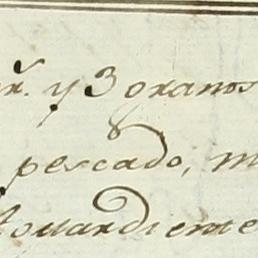 y 3 granos
pescado, m
Aguardiente